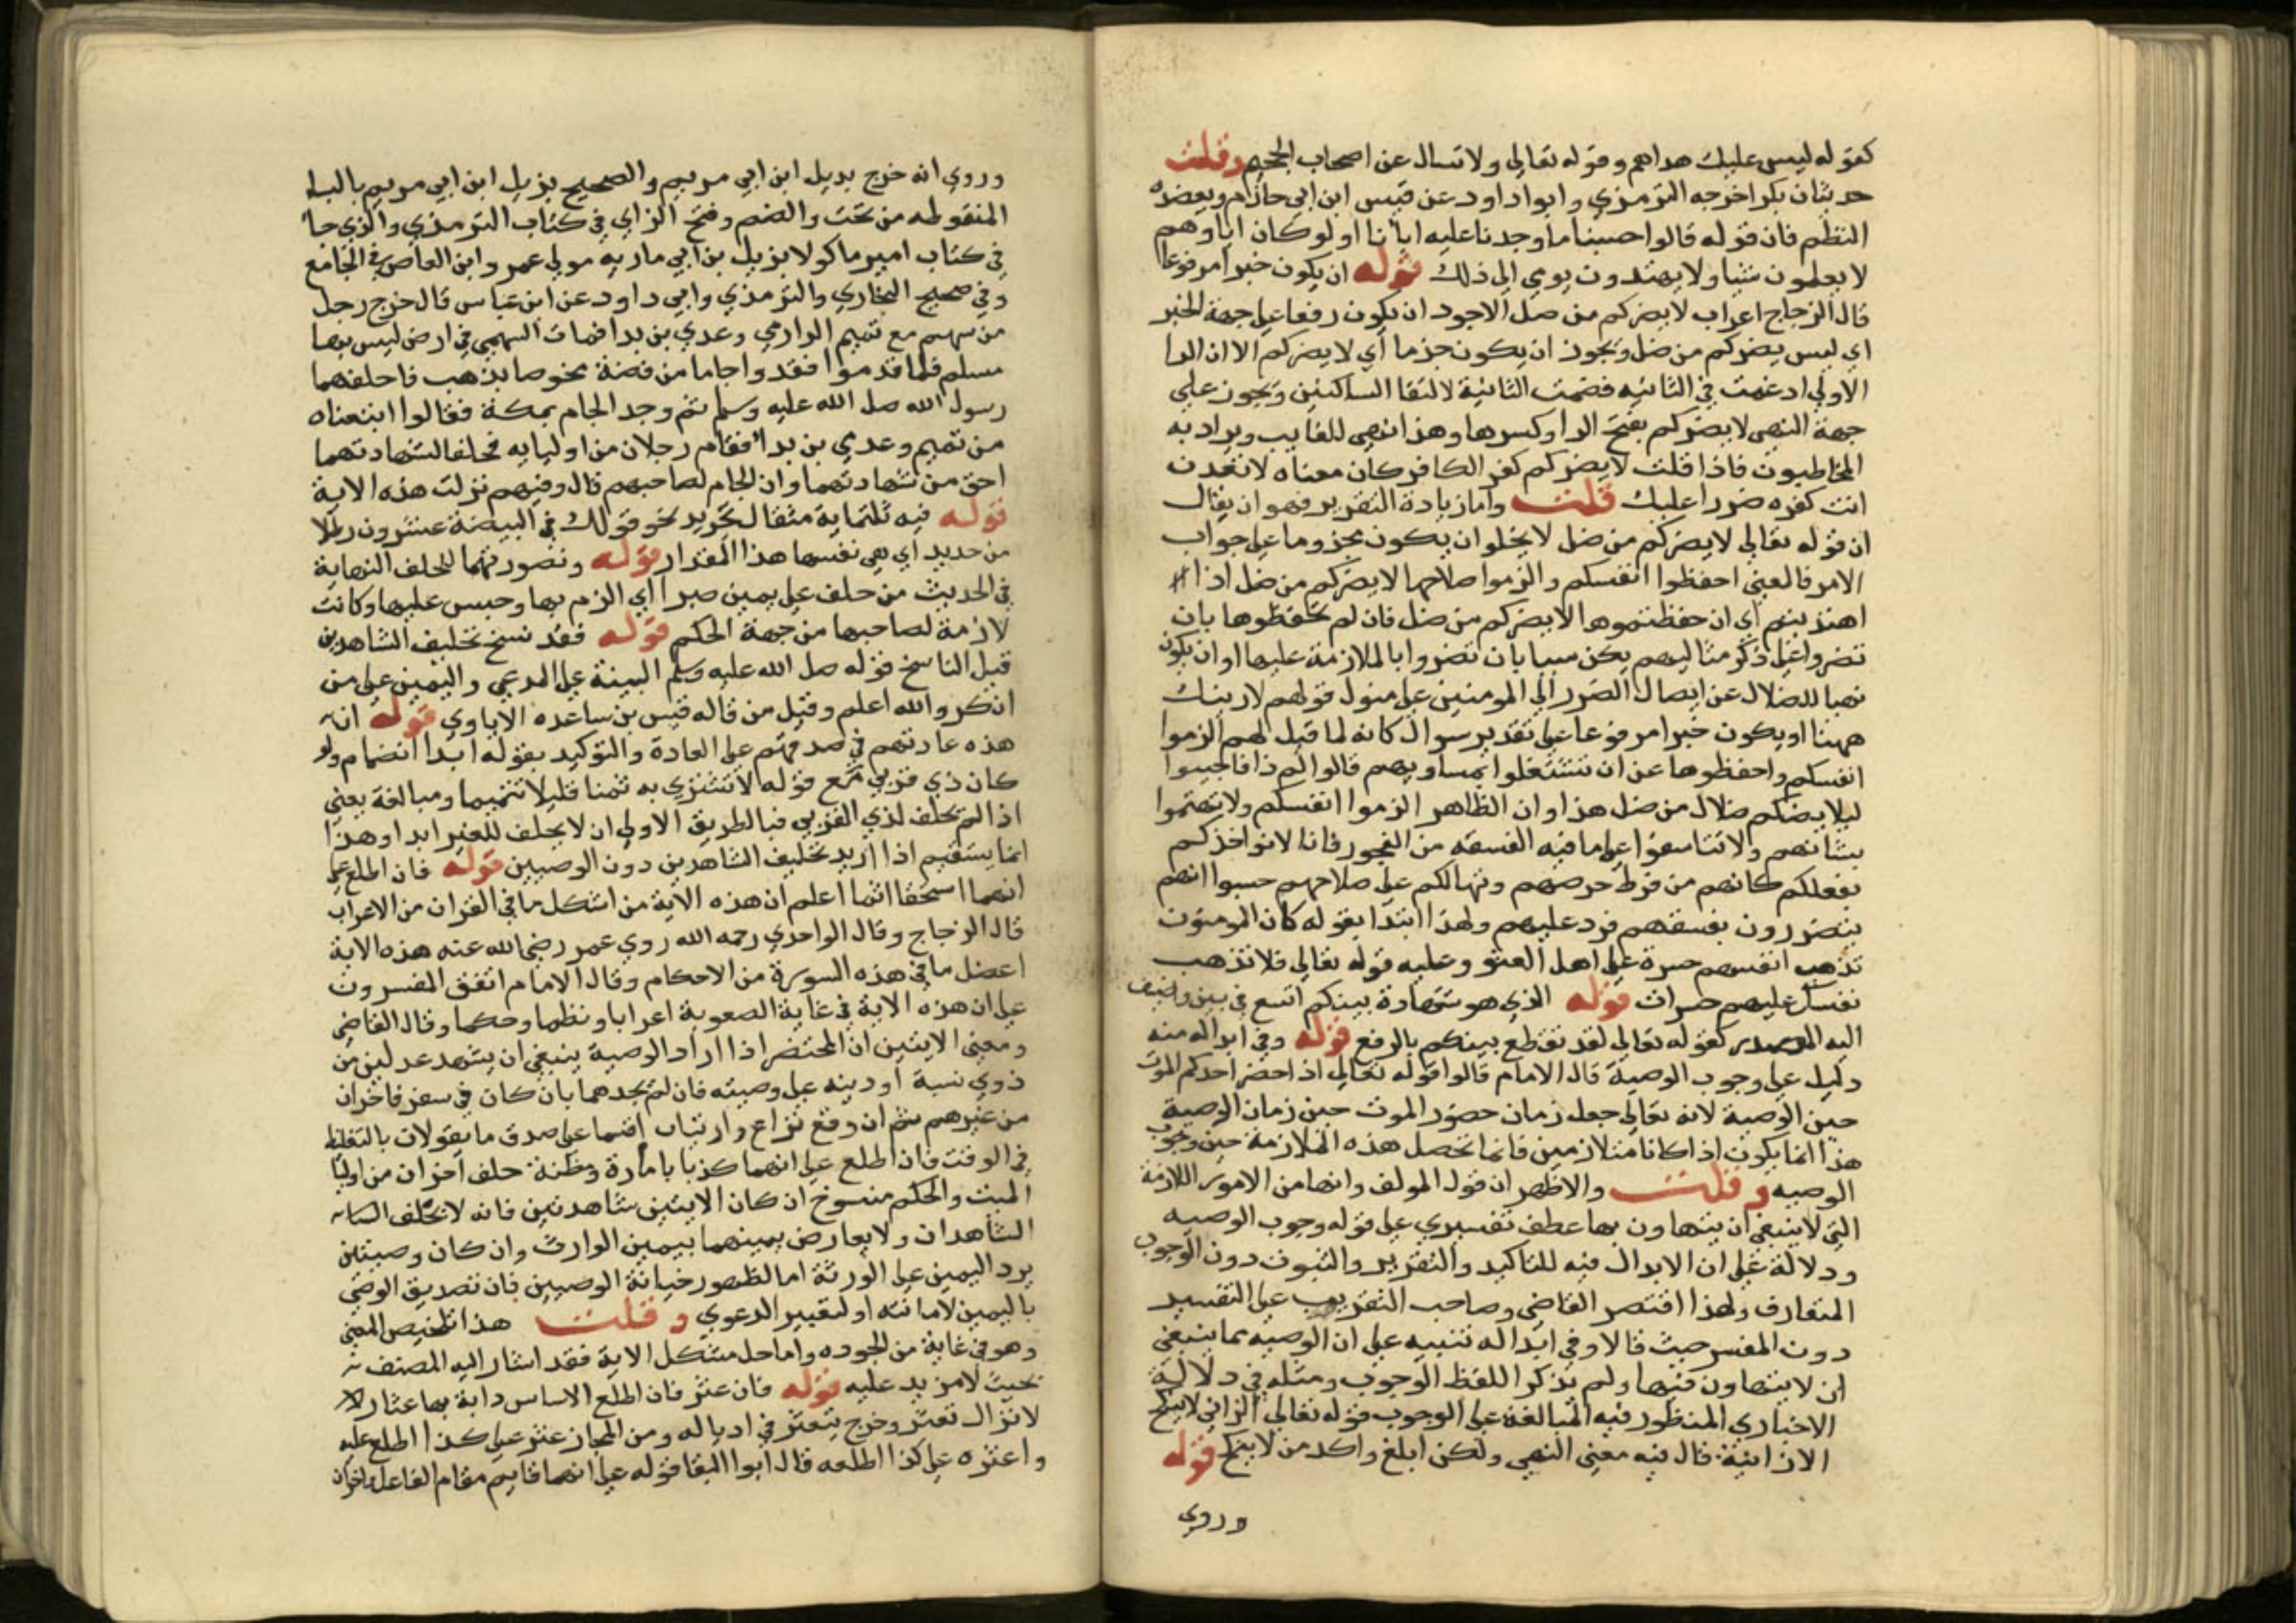 كقوله ليس عليك هداهم وقوله تعالى ولا تسال عن اصحاب الجحيم وقلت
حديثان بكر اخرجه الترمذي وابوا داود عن قيس ابن ابي حازم ويعضده
النظم فان قوله قالوا حسبنا ما وجدنا عليه اباءنا اولو كان اباوهم
لا يعلمون شيا ولا يهتدون يومي الى ذلك قوله ان يكون خبرا مرفوعا
قال الزجاج اعراب لا يضركم من ضل الاجود ان يكون رفعا على جهة الخبر
اي ليس يضركم من ضل ويجوز ان يكون جزما اي لا يضركم الا ان الرا
الاولى ادغمت في الثانيه فضمت الثانية لالتقا الساكنين ويجوز على
جهة النهي لا يضركم بفتح الرا وكسرها وهذا نهي للغايب ويراد به
المخاطبون فاذا قلت لا يضركم كفر الكافر كان معناه لا تعدن
انت كفره ضررا عليك قلت واما زيادة التقرير فهو ان يقال
ان قوله تعالى لا يضركم من ضل لا يخلوا ان يكون مجزوما على جواب
الامر فالمعني احفظوا انفسكم والزموا صلاحها لا يضركم من ضل اذا
اهتديتم اي ان حفظتموها لا يضركم من ضل فان لم تحفظوها بان
تضروا على ذكر مثالبهم يكن سببا بان تضروا بالملازمة عليها او ان يكون
نهيا للضلال عن ايصال الضرر الى المومنين على منول قولهم لا رينك
ههنا او يكون خبرا مرفوعا على تقدير سوال كانه لما قيل لهم الزموا
انفسكم واحفظوها عن ان تشتغلوا بمساويهم قالوا لم ذا فاجيبوا
ليلا يضكم ضلال من ضل هذا وان الظاهر الزموا انفسكم ولا تهتموا
بشانهم ولا تتاسفوا على ما فيه الفسقه من الفجور فانا لا نواخذكم
بفعلكم كانهم من فرط حرصهم وتهالكم على صلاحهم حسبوا انهم
يتضررون بفسقهم فرد عليهم ولهذا ابتدا بقوله كان المومنون
تذهب انفسهم حسرة على اهل العتو وعليه قوله تعالى فلا تذهب
نفسك عليهم حسرات قوله الذي هو شهادة بينكم اتسع في بين واضيف
اليه المصدر كقوله تعالى لقد تقطع بينكم بالرفع قوله وفي ابداله منه
دليل على وجوب الوصية قال الامام قالوا قوله تعالى اذا حضر احدكم الموت
حين الوصية لانه تعالى جعل زمان حضور الموت حين زمان الوصية
هذا انما يكون اذا كانا متلازمين فانما تحصل هذه الملازمة حين وجوب
الوصيه وقلت والاظهر ان قول المولف وانها من الامور اللازمة
التي لا ينبغي ان يتهاون بها عطف تفسيري على قوله وجوب الوصيه
ودلالة على ان الابدال فيه للتاكيد والتقرير والثبوت دون الوجوب
المتعارف ولهذا اقتصر القاضي وصاحب التقريب على التفسير
دون المفسر حيث قالا وفي ابداله تنبيه على ان الوصيه مما ينبغي
ان لا يتهاون فيها ولم يذكرا اللفظ الوجوب ومثله في دلالة
الاخباري المنظور فيه المبالغة على الوجوب قوله تعالى الزاني لا ينكح
الا زانية قال فيه معنى النهي ولكن ابلغ واكد من لا ينكح قوله
وروي
وروي انه خرج بديل ابن ابي مريم والصحيح بزيل ابن ابي مريم بالبا
المنقوطه من تحت والضم وفتح الزاي في كتاب الترمذي والذي جاء
في كتاب امير ماكولا بزيل بن ابي ماريه مولى عمر وابن العاص في الجامع
وفي صحيح البخاري والترمذي وابي داود عن ابن عباس قال خرج رجل
من سهم مع تميم الداري وعدي بن بدا فمات السهمي في ارض ليس بها
مسلم فلما قدموا فقدوا جاما من فضة مخوصا بذهب فاحلفهما
رسول الله صل الله عليه وسلم ثم وجد الجام بمكة فقالوا ابتعناه
من تميم وعدي بن بداء فقام رجلان من اوليايه فحلفا لشهادتهما
احق من شهادتهما وان الجام لصاحبهم قال وفيهم نزلت هذه الاية
قوله فيه ثلثماية مثقال تجريد نحو قولك في البيضة عشرون رطلا
من حديد اي هي نفسها هذا المقدار قوله وتصورتهما للحلف النهاية
في الحديث من حلف على يمين صبرا اي الزم بها وحبس عليها وكانت
لازمة لصاحبها من جهة الحكم قوله فقد نسخ تحليف الشاهدين
قيل الناسخ قوله صل الله عليه وسلم البينة على المدعي واليمين على من
انكر والله اعلم وقيل من قاله قيس بن ساعده الاياوي قوله ان
هذه عادتهم في صدقهم على العادة والتوكيد بقوله ابدا انضمام ولو
كان ذي قربى مع قوله لا نشتري به ثمنا قليلا تتميما ومبالغة يعني
اذا لم نحلف لذي القربى فبالطريق الاولى ان لا يحلف للغير ابدا وهذا
انما يستقيم اذا اريد تحليف الشاهدين دون الوصيين قوله فان اطلع على
انهما استحقا اثما اعلم ان هذه الاية من اشكل ما في القران من الاعراب
قال الزجاج وقال الواحدي رحمه الله روي عمر رضي الله عنه هذه الاية
اعضل ما في هذه السورة من الاحكام وقال الامام اتفق المفسرون
على ان هذه الاية في غاية الصعوبة اعرابا ونظما وحكما وقال القاضي
ومعنى الايتين ان المحتضر اذا اراد الوصية ينبغي ان يشهد عدلين من
ذوي نسبة او دينه على وصيته فان لم يجدهما بان كان في سفر فاخران
من غيرهم ثم ان وقع نزاع وارتياب اقسما على صدق ما يقولان بالتغليظ
في الوقت فان اطلع على انهما كذبا بامارة ومظنة حلف اخران من اوليا
الميت والحكم منسوخ ان كان الايتين شاهدين فانه لا يحلف
الشاهدان ولا يعارض يمينهما بيمين الوارث وان كان وصيتين
يرد اليمين على الورثة اما لظهور خيانة الوصيين فان تصديق الوصي
باليمين لامانته او لتغيير الدعوي وقلت هذا تلخيص المعنى
وهو في غاية من الجوده واما حل مشكل الاية فقد اشار اليه المصنف
بحيث لا مزيد عليه قوله فان عثر فان اطلع الاساس دابة بها عثار
لا تزال تعثر وخرج يتعثر في اذياله ومن المجاز عثر على كذا اطلع عليه
واعثره على كذا اطلعه قال ابوا البقا قوله على انهما قايم مقام الفاعل واخران